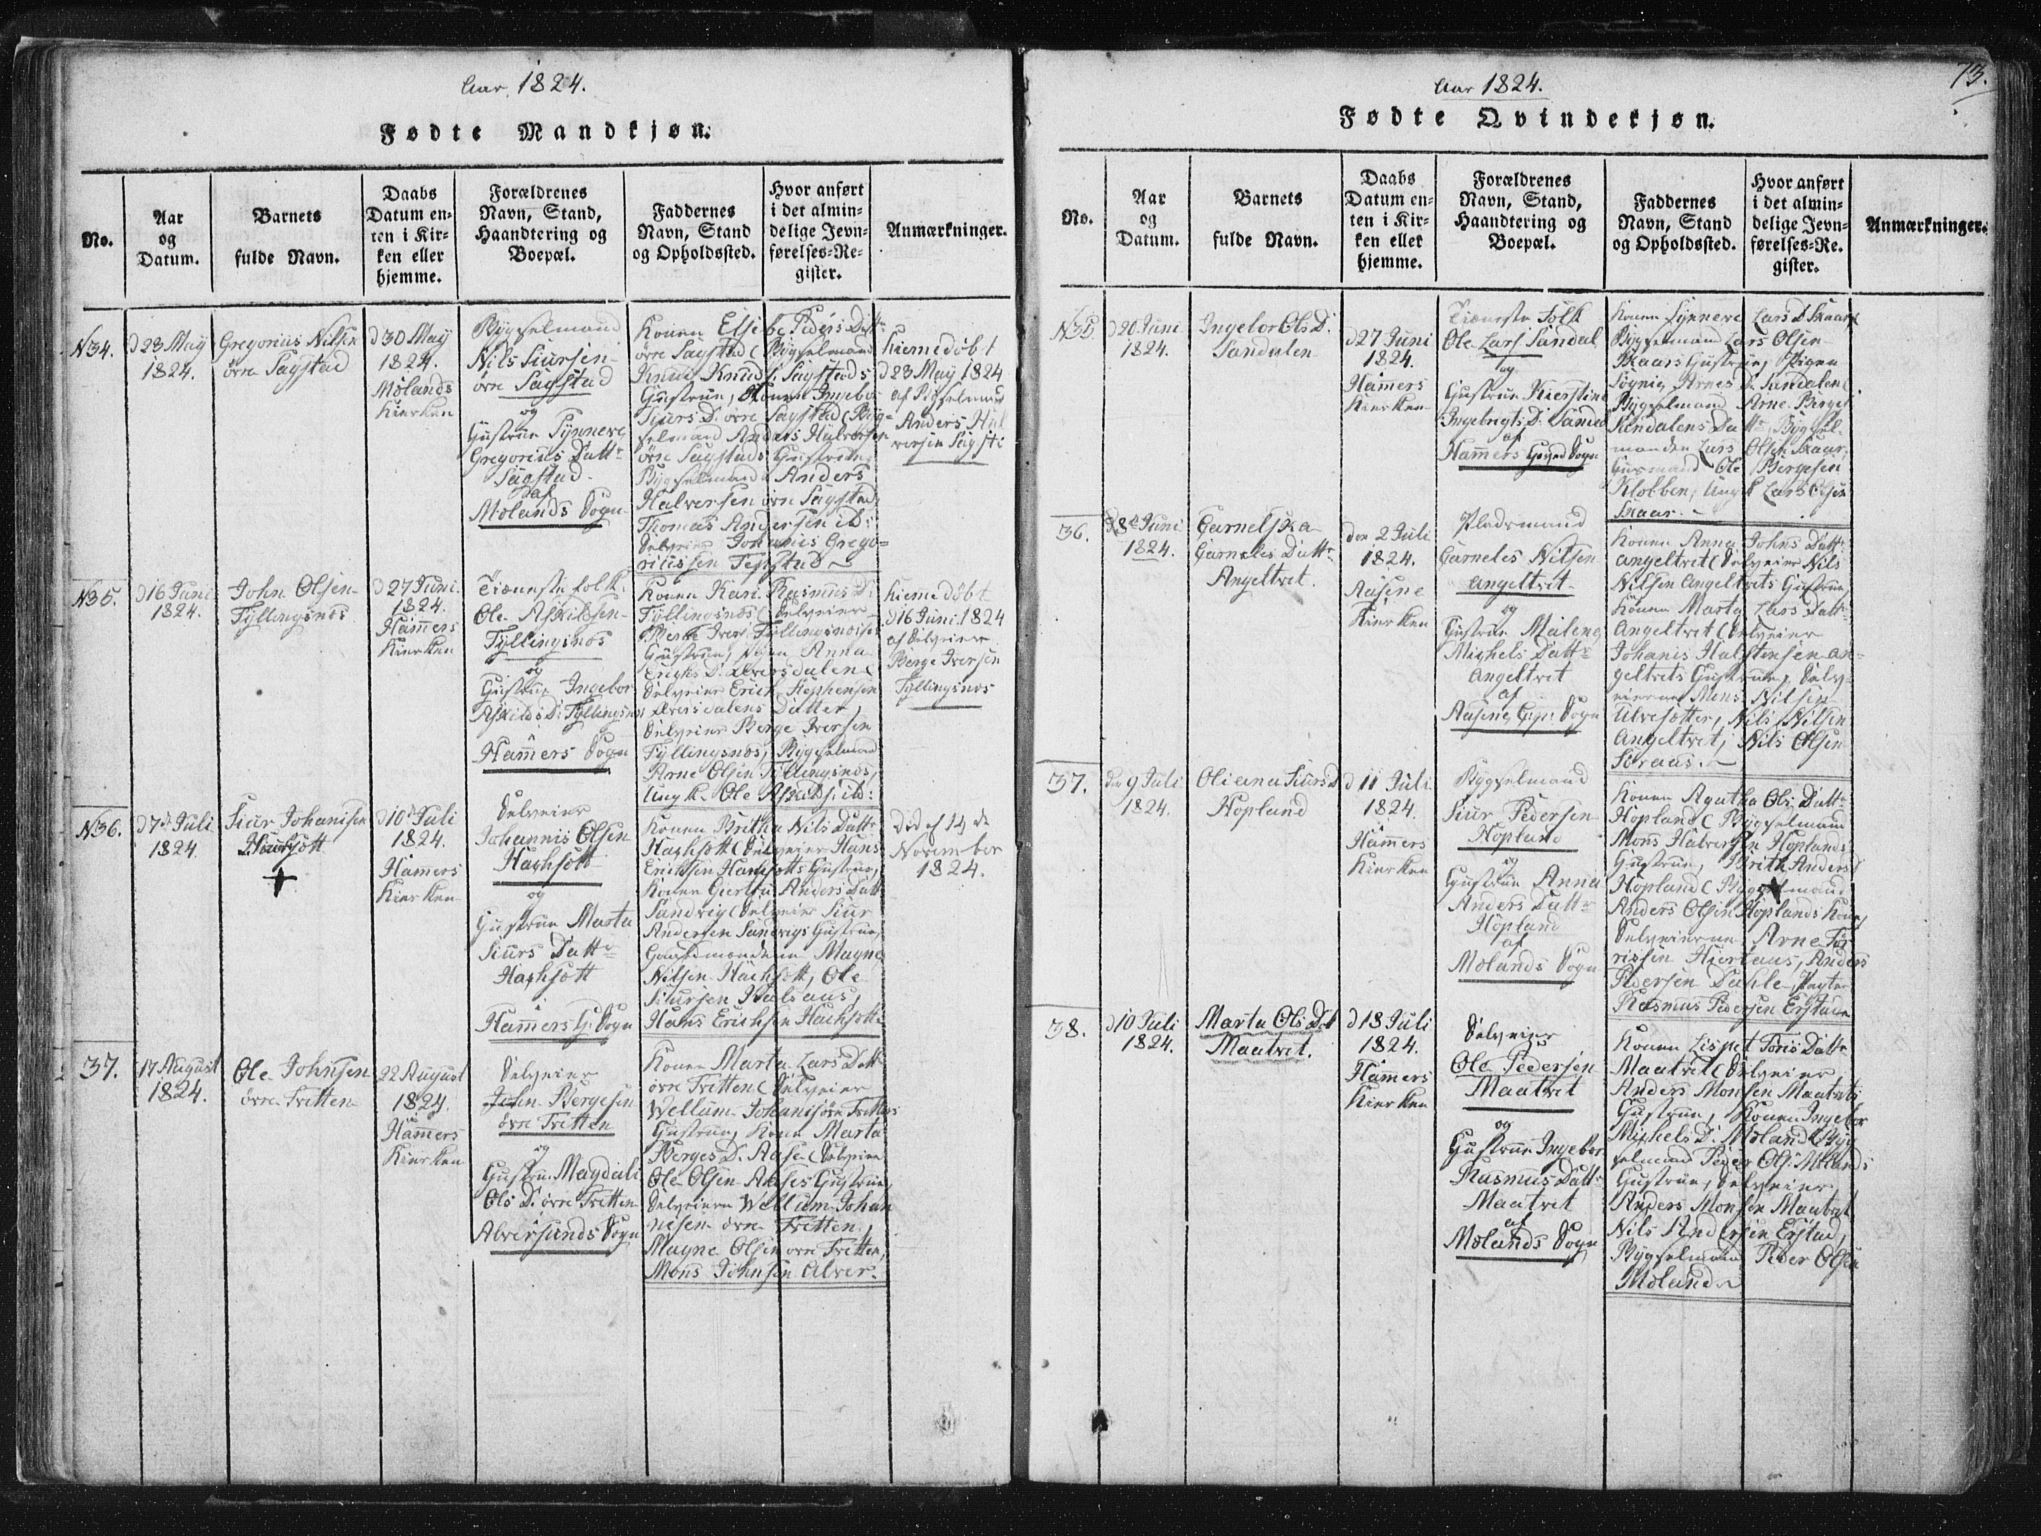 Aar 1824.
Fødte Mandkjøn.
No.
Aar
og
Datum.
Barnets
fulde Navn.
Daabs
Datum en-
ten i Kir-
ken eller
hjemme.
Forældrenes
Navn, Stand,
Haandtering og
Boepæl.
Faddernes
Navn, Stand
og Opholdssted.
Hvor anført
i det almin-
delige Jevn-
førelses-Re-
gister.
Anmærkninger.
N34.
d 23 May
1824.
Gregorius Nilsen
övre Sagstad
d 30 May
1824.
Mølands
Kierken
Bÿgselmand
Nils Siursen
övre Sagstad
og
Hustrue Synneve
Gregoriüs Datt
Sagstad
af
Mølands Sogn
Konen Elsebe Peders Datt
övre Sagstad (Bÿgselmand
Knud Knuds: Sagstads
Hustrue, Konen Ingebor
Siurs D. övre Sagstad (Bÿg-
selmand Anders Halvorsen
övre Sagstads Hustrue,
Bÿgselmand Anders
Halversen övre Sagstad,
Thomas Andersen ib:
Selveier Johannis Grego-
riussen
hiemedøbt
d 23 May 1824
af Bÿgselmand
Anders Hal
versen Sagst:
N35.
d 16 Juni
1824.
John Olsen
Fÿllingsnøs
d 27 Juni
1824.
Hamers
Kierken
Tienestefolk
Ole Askildsen
Fÿllingsnøs
og
Hustrue Ingebor
Askilds D: Fÿllingsnøs
Hamers Sogn
Konen Kari Rasmus D:
Fÿllingsnøs (Selveier
Berge Ivers: Fÿllingsnøses
Hustrue, Pigen Anna
Erichs D.
Selveier Erich Stephensen
Datter,
Selveier Berge Iversen
Fÿllingsnøs, Bÿgselmand
Arne Olsen Fÿllingsnøs,
Ungk. Ole Askilds: ib:
hiemedøbt
d 16 Juni 1824
af Selveier
Berge Iversen
Fÿllingsnøs
N36.
d 7 Juli
1824.
Siur Johanisen
+
d 10 Juli
1824
Hamers
Kierken
Selveier
Johannis Olsen
Hachsött
og
Hustrue Marta
Siurs Datt
Hachsött
i
Hamers G: Sogn
Konen Britha Nils Datt
Hachsött (Selveier Hans
Erichsen Hachsötts Hustrue,
Konen Giertru Anders Datt
Sandvig (Selveier Siur
Andersen Sandvigs Hustrue,
Gaardmændene Magne
Nilsen Hachsött, Ole
Siursen
Hans Erichsen Hachsött
Død af 14 de
November
1824.
37.
17 August
1824.
Ole Johnsen
övre Fritten
22 August
1824.
i Hamers
Kierken
Selveier
John Bergesen
övre Fritten
og
Hustrue Magdali
Ols D. övre Fritten
Alversunds Sogn
Konen Marta Lars Datt
övre Fritten (Selveier
Wellum Johanis övre Frittens
Hustrue, Konen Marta
Berges D. Aase (Selveier
Ole Olsen Aases Hustrue,
Selveierne Wellum Johan
nesen övre Fritten,
Magne Olsen övre Fritten,
Mons Johnsen Alver.
73.
Aar 1824.
Fødte Qvindekjøn.
No.
Aar
og
Datum.
Barnets
fulde Navn.
Daabs
Datum en-
ten i Kir-
ken eller
hjemme.
Forældrenes
Navn, Stand,
Haandtering og
Boepæl.
Faddernes
Navn, Stand
og Opholdssted.
Hvor anført
i det almin-
delige Jevn-
førelses-Re-
gister.
Anmærkninger.
N35
d 20 Juni
1824.
Ingebor Ols D.
Sandalen
d 27 Juni
1824.
Hamers
Kierken
Tieneste Folk
Ole Lars: Sandal
og
Hustrue Kierstine
Ingebrigts D. Sandal
af
Hammers Sogn
Konen Synneve Lars D Skaar
Bÿgselmand Lars Olsen
Skaars Hustrue, Pigen
Sÿgnig Arnes D. Sandalen (
Bÿgselmand Arne Berges
Sandalens Datt, Bÿgsel
manden Lars Olsen Skaar,
Huusmand Ole Bergesen
Klobben, Ungk. Lars Olsen
Skaar.
36.
Juni
1824.
Garnelska
Garneles Datt
Angeltvet.
den 2 Juli
1824.
Aasene
Kierken
Pladsmand
Garneles Nilsen
Angeltvet
og
Hustrue Malene
Michels Datt
Angeltvet
af
Aasene Sogn
Konen Anna Johns Datt
Angeltvet (Selveier Nils
Nilsen Angeltvets Hustrue,
Konen Marta Lars Datt
Angeltvet (Selveier
Johanis Halstensen An-
geltvets Hustrue, Selv-
eierne Mons Nilsen
Ulvesötter, Nils Nilsen
Angeltvet, Nils Olsen
37.
den 9 Juli
1824.
Oliana Siurs D
Hopland
d 11 Juli
1824.
Hamers
Kierken
Bÿgselmand
Siur Pedersen
Hopland
og
Hustrue Anna
Anders Datt
Hopland
af
Mølands Sogn
Konen Agatha Ols Datt
Hopland (Bÿgselmand
Mons Halversen Hoplands
Hustrue, Brita Anders D
Hopland (Bÿgselmand
Anders Olsen Hoplands Kone,
Selveierne Arne Tor
rissen Hiertaas, Anders
Pedersen Dahle, Pagter
Rasmus Pedersen Erstad
38.
d 10 Juli
1824.
Marta Ols Dt
Maatvet.
d 18 Juli
1824.
Hamers
Kierken
Selveier
Ole Pedersen
Maatvet
og
Hustrue Ingebor
Rasmus Datt
Maatvet
af
Mølands Sogn
Konen Lispet Toris Datt
Maatvet (Selveier
Anders Monsen Maatvets
Hustrue, Konen Ingebor
Michels D. Møland (Bÿg
selmand Peder Ols: Mølands
Hustrue, Selveier
Anders Monsen Maatvet
Nils Andersen Erstad,
Bÿgselmand Peder Olsen
Møland